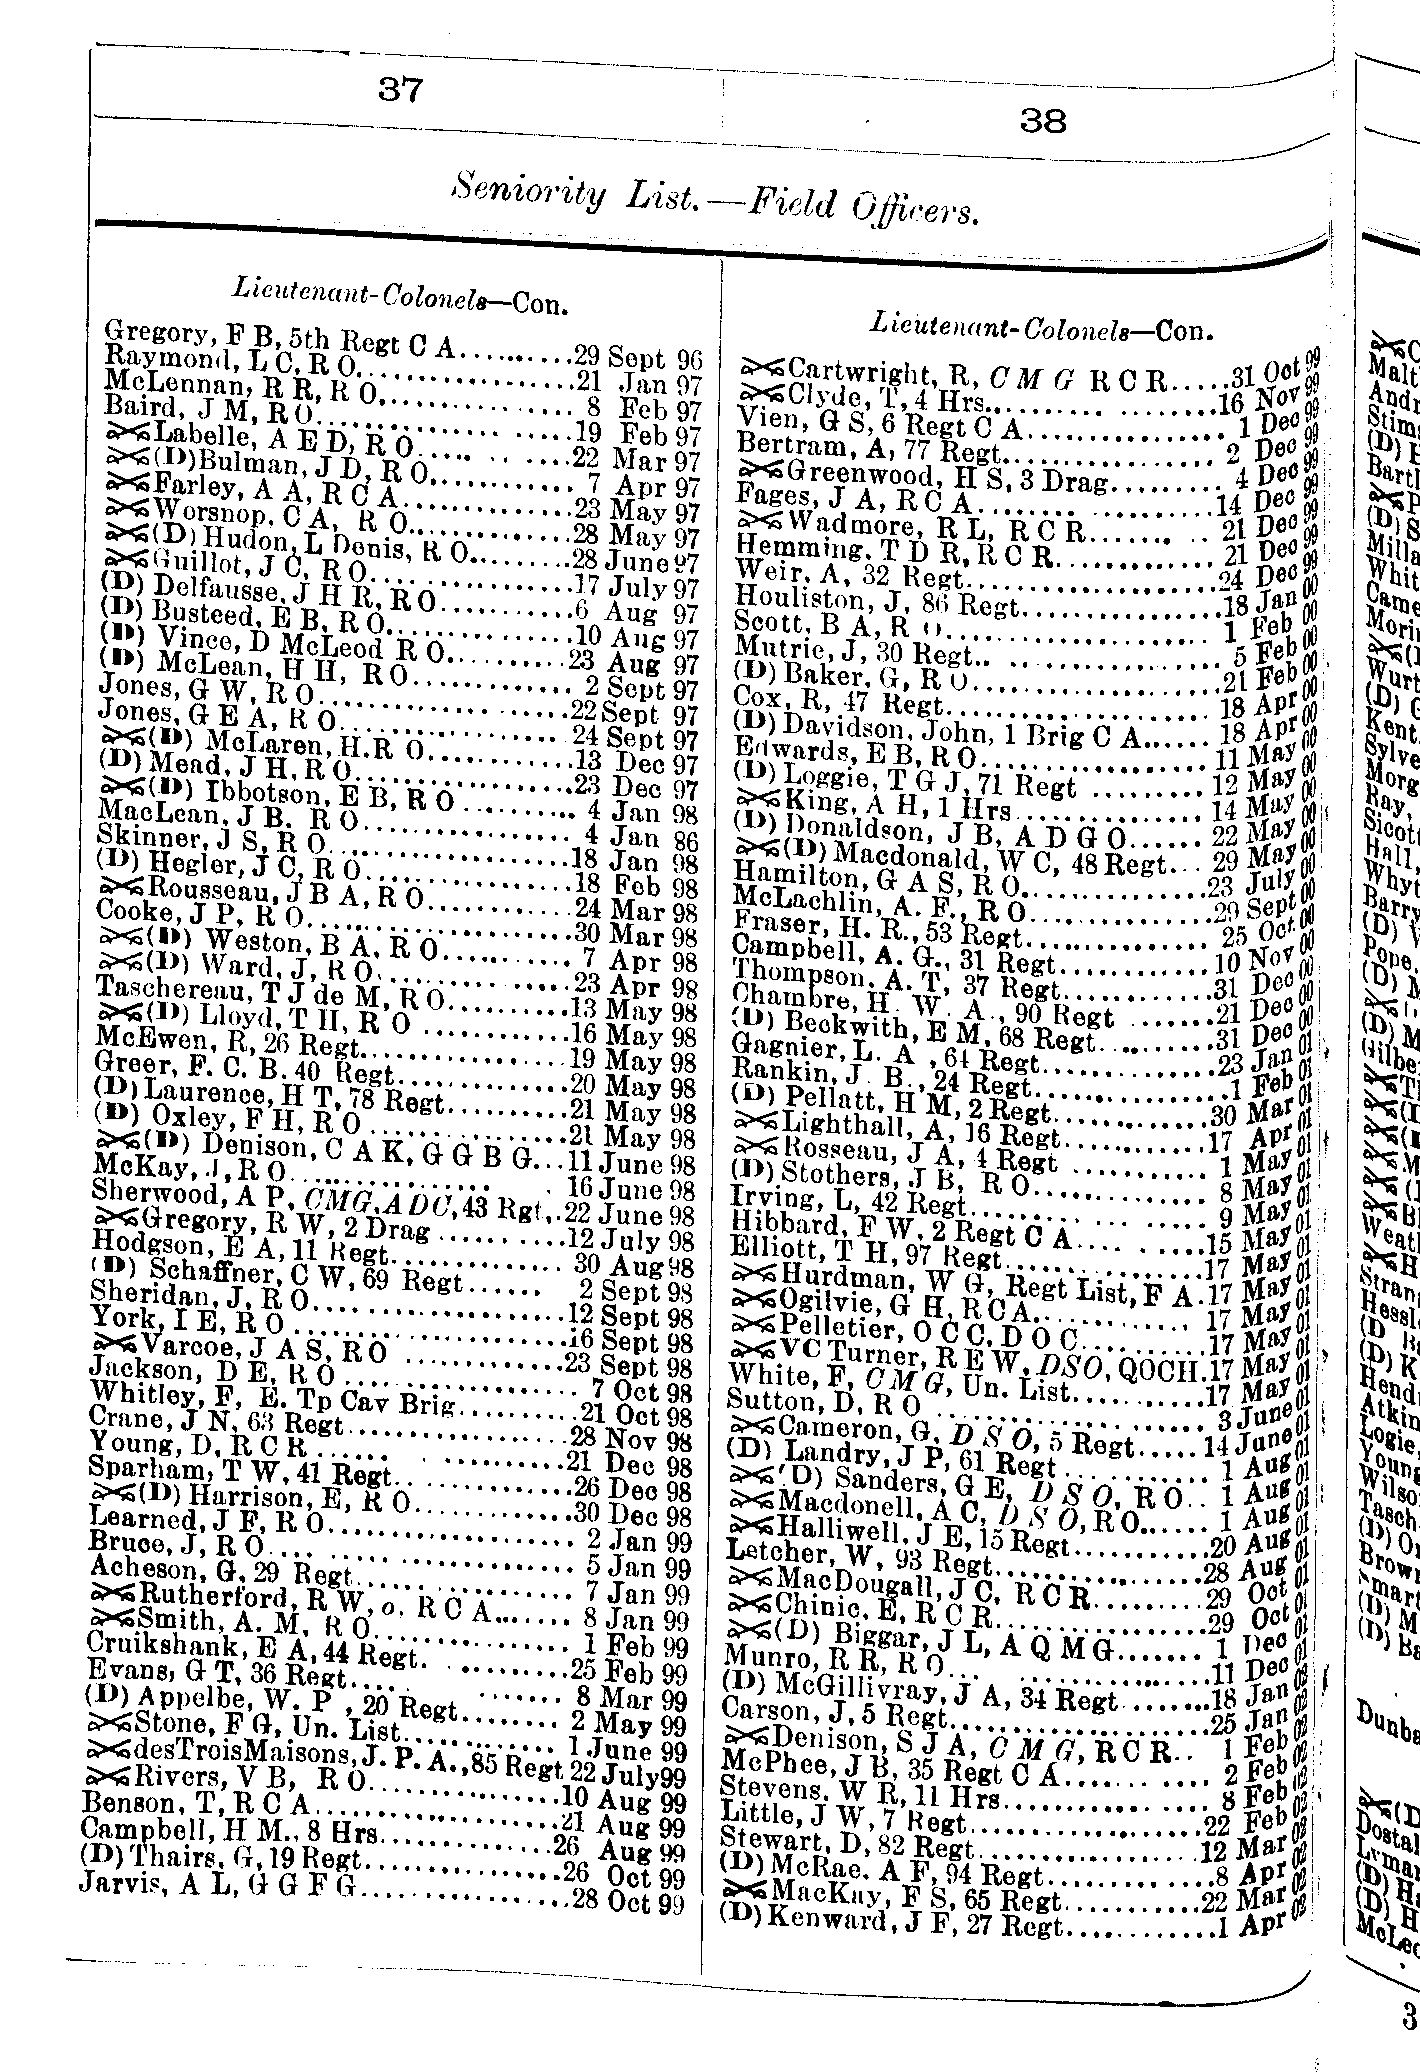 37
38
Seniority List.—Field Officers.
Lieutenant-Colonels—Con.
Gregory, F B, 5th Regt C A..........29 Sept 96
Raymond, L C, R O..................21 Jan 97
McLennan, R R, R O.................8 Feb 97
Baird, J M, R O....................19 Feb 97
Labelle, A E D, R O................22 Mar 97
(D) Bulman, J D, R O...............7 Apr 97
Farley, A A, R C A.................23 May 97
Worsnop, C A, R O..................28 May 97
(D) Hudon, L Denis, R O............28 June 97
Guillot, J C, R O..................17 July 97
(D) Delfausse, J H R, R O..........6 Aug 97
(D) Busteed, E B, R O..............10 Aug 97
(D) Vince, D McLeod R O............23 Aug 97
(D) McLean, H H, R O...............2 Sept 97
Jones, G W, R O....................22 Sept 97
Jones, G E A, R O..................24 Sept 97
(D) McLaren, H. R O................13 Dec 97
(D) Mead, J H, R O.................23 Dec 97
(D) Ibbotson, E B, R O.............4 Jan 98
MacLean, J B. R O..................4 Jan 86
Skinner, J S, R O..................18 Jan 98
(D) Hegler, J C, R O...............18 Feb 98
Rousseau, J B A, R O...............24 Mar 98
Cooke, J P, R O....................30 Mar 98
(D) Weston, B A, R O...............7 Apr 98
(D) Ward, J, R O...................23 Apr 98
Taschereau, T J de M, R O..........13 May 98
(D) Lloyd, T H, R O................16 May 98
McEwen, R, 26 Regt.................19 May 98
Greer, F. C. B. 40 Regt............20 May 98
(D) Laurence, H T, 78 Regt.........21 May 98
(D) Oxley, F H, R O................21 May 98
(D) Denison, C A K, G G B G...11 June 98
McKay, J, R O......................16 June 98
Sherwood, A P, CMG, ADC, 43 Rgt,..22 June 98
Gregory, R W, 2 Drag...............12 July 98
Hodgson, E A, 11 Regt..............30 Aug 98
(D) Schaffner, C W, 69 Regt........2 Sept 98
Sheridan, J, R O...................12 Sept 98
York, I E, R O.....................16 Sept 98
Varcoe, J A S, R O.................23 Sept 98
Jackson, D E, R O..................7 Oct 98
Whitley, F, E. Tp Cav Brig.........21 Oct 98
Crane, J N, 63 Regt................28 Nov 98
Young, D, R C R....................21 Dec 98
Sparham, T W, 41 Regt..............26 Dec 98
(D) Harrison, E, R O...............30 Dec 98
Learned, J F, R O..................2 Jan 99
Bruce, J, R O......................5 Jan 99
Acheson, G, 29 Regt................7 Jan 99
Rutherford, R W, o, R C A..........8 Jan 99
Smith, A. M, R O...................1 Feb 99
Cruikshank, E A, 44 Regt...........25 Feb 99
Evans, G T, 36 Regt................8 Mar 99
(D) Appelbe, W. P, 20 Regt.........2 May 99
Stone, F G, Un. List...............1 June 99
desTroisMaisons, J. P. A., 85 Regt 22 July 99
Rivers, V B, R O...................10 Aug 99
Benson, T, R C A...................21 Aug 99
Campbell, H M., 8 Hrs..............26 Aug 99
(D) Thairs, G, 19 Regt.............26 Oct 99
Jarvis, A L, G G F G...............28 Oct 99
Lieutenant-Colonels—Con.
Cartwright, R, C M G R C R.....31 Oct 99
Clyde, T, 4 Hrs................16 Nov 99
Vien, G S, 6 Regt C A..........1 Dec 99
Bertram, A, 77 Regt............2 Dec 99
Greenwood, H S, 3 Drag.........4 Dec 99
Fages, J A, R C A..............14 Dec 99
Wadmore, R L, R C R............21 Dec 99
Hemming, T D R, R C R..........21 Dec 99
Weir, A, 32 Regt...............24 Dec 99
Houliston, J, 86 Regt..........18 Jan 00
Scott, B A, R O................1 Feb 00
Mutrie, J, 30 Regt.............5 Feb 00
(D) Baker, G, R O..............21 Feb 00
Cox, R, 47 Regt................18 Apr 00
(D) Davidson, John, 1 Brig C A......18 Apr 00
Edwards, E B, R O..............11 May 00
(D) Loggie, T G J, 71 Regt.....12 May 00
King, A H, 1 Hrs...............14 May 00
(D) Donaldson, J B, A D G O......22 May 00
(D) Macdonald, W C, 48 Regt...29 May 00
Hamilton, G A S, R O...........23 July 00
McLachlin, A. F., R O..........29 Sept 00
Fraser, H. R., 53 Regt.........25 Oct 00
Campbell, A. G., 31 Regt.......10 Nov 00
Thompson, A. T, 37 Regt........31 Dec 00
Chambre, H. W. A., 90 Regt.....21 Dec 00
(D) Beckwith, E M, 68 Regt.....31 Dec 00
Gagnier, L. A, 64 Regt.........23 Jan 01
Rankin, J. B., 24 Regt.........1 Feb 01
(D) Pellatt, H M, 2 Regt.......30 Mar 01
Lighthall, A, 16 Regt..........17 Apr 01
Rosseau, J A, 4 Regt...........1 May 01
(D) Stothers, J B, R O.........8 May 01
Irving, L, 42 Regt.............9 May 01
Hibbard, F W, 2 Regt C A.......15 May 01
Elliott, T H, 97 Regt..........17 May 01
Hurdman, W G, Regt List, F A.17 May 01
Ogilvie, G H, R C A............17 May 01
Pelletier, O C C, D O C........17 May 01
VC Turner, R E W, DSO, QOCH.17 May 01
White, F, C M G, Un. List......17 May 01
Sutton, D, R O.................3 June 01
Cameron, G, D S O, 5 Regt.....14 June 01
(D) Landry, J P, 61 Regt.......1 Aug 01
(D) Sanders, G E, D S O, R O..1 Aug 01
Macdonell, A C, D S O, R O......1 Aug 01
Halliwell, J E, 15 Regt........20 Aug 01
Letcher, W, 93 Regt............28 Aug 01
MacDougall, J C, R C R.........29 Oct 01
Chinic, E, R C R...............29 Oct 01
(D) Biggar, J L, A Q M G.......1 Dec 01
Munro, R R, R O................11 Dec 01
(D) McGillivray, J A, 34 Regt..18 Jan 02
Carson, J, 5 Regt..............25 Jan 02
Denison, S J A, C M G, R C R..1 Feb 02
McPhee, J B, 35 Regt C A.......2 Feb 02
Stevens, W R, 11 Hrs...........8 Feb 02
Little, J W, 7 Regt............22 Feb 02
Stewart, D, 82 Regt............12 Mar 02
(D) McRae, A F, 94 Regt........8 Apr 02
MacKay, F S, 65 Regt...........22 Mar 02
(D) Kenward, J F, 27 Regt......1 Apr 02